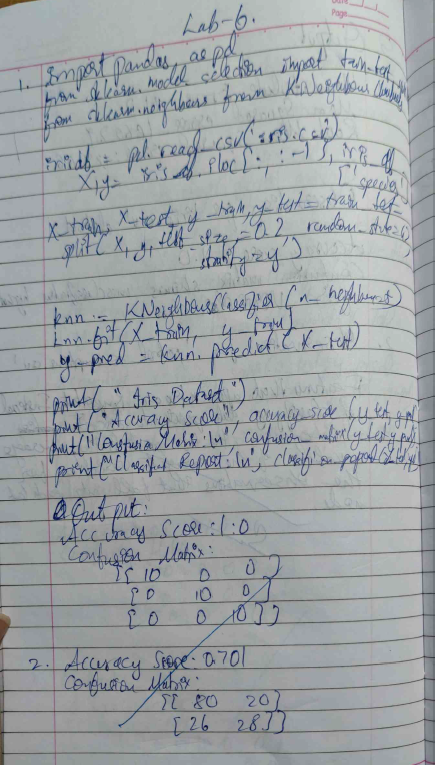 Date
Page
Lab-6.
1. Import pandas as pd
from sklearn.model selection import train-test
from sklearn.neighbours from KNeighbours
iris df = pd. read- csv('iris.csv')
X, y = iris df. iloc[:, :-1], iris df
['species']
X-train, X-test, y-train, y-test = train test-
split(X, y, test-size = 0.2, random-state=
stratify = y)
knn = KNeighboursClassifier(n_neighbours
knn.fit(X_train, y_train)
y-pred = knn. predict(X_test)
print("Iris Dataset")
print("Accuracy Score", accuracy score (y test, y
print("Confusion Matrix:\n", confusion matrix(y test, y
print("Classifi Report:\n", classifi on
Output:
Accuracy Score: 1.0
Confusion Matrix:
[[10 0 0]
[0 10 0]
[0 0 10]]
2. Accuracy Score: 0.701
Confusion Matrix:
[[80 20]
[26 28]]